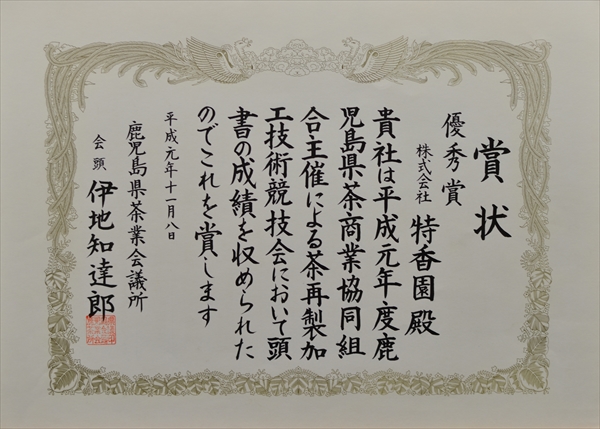 賞状
優秀賞
株式会社 特香園殿
貴社は平成元年度鹿
児島県茶商業協同組
合主催による茶再製加
工技術競技会において頭
書の成績を収められた
のでこれを賞します
平成元年十一月八日
鹿児島県茶業会議所
会頭 伊地知達郎